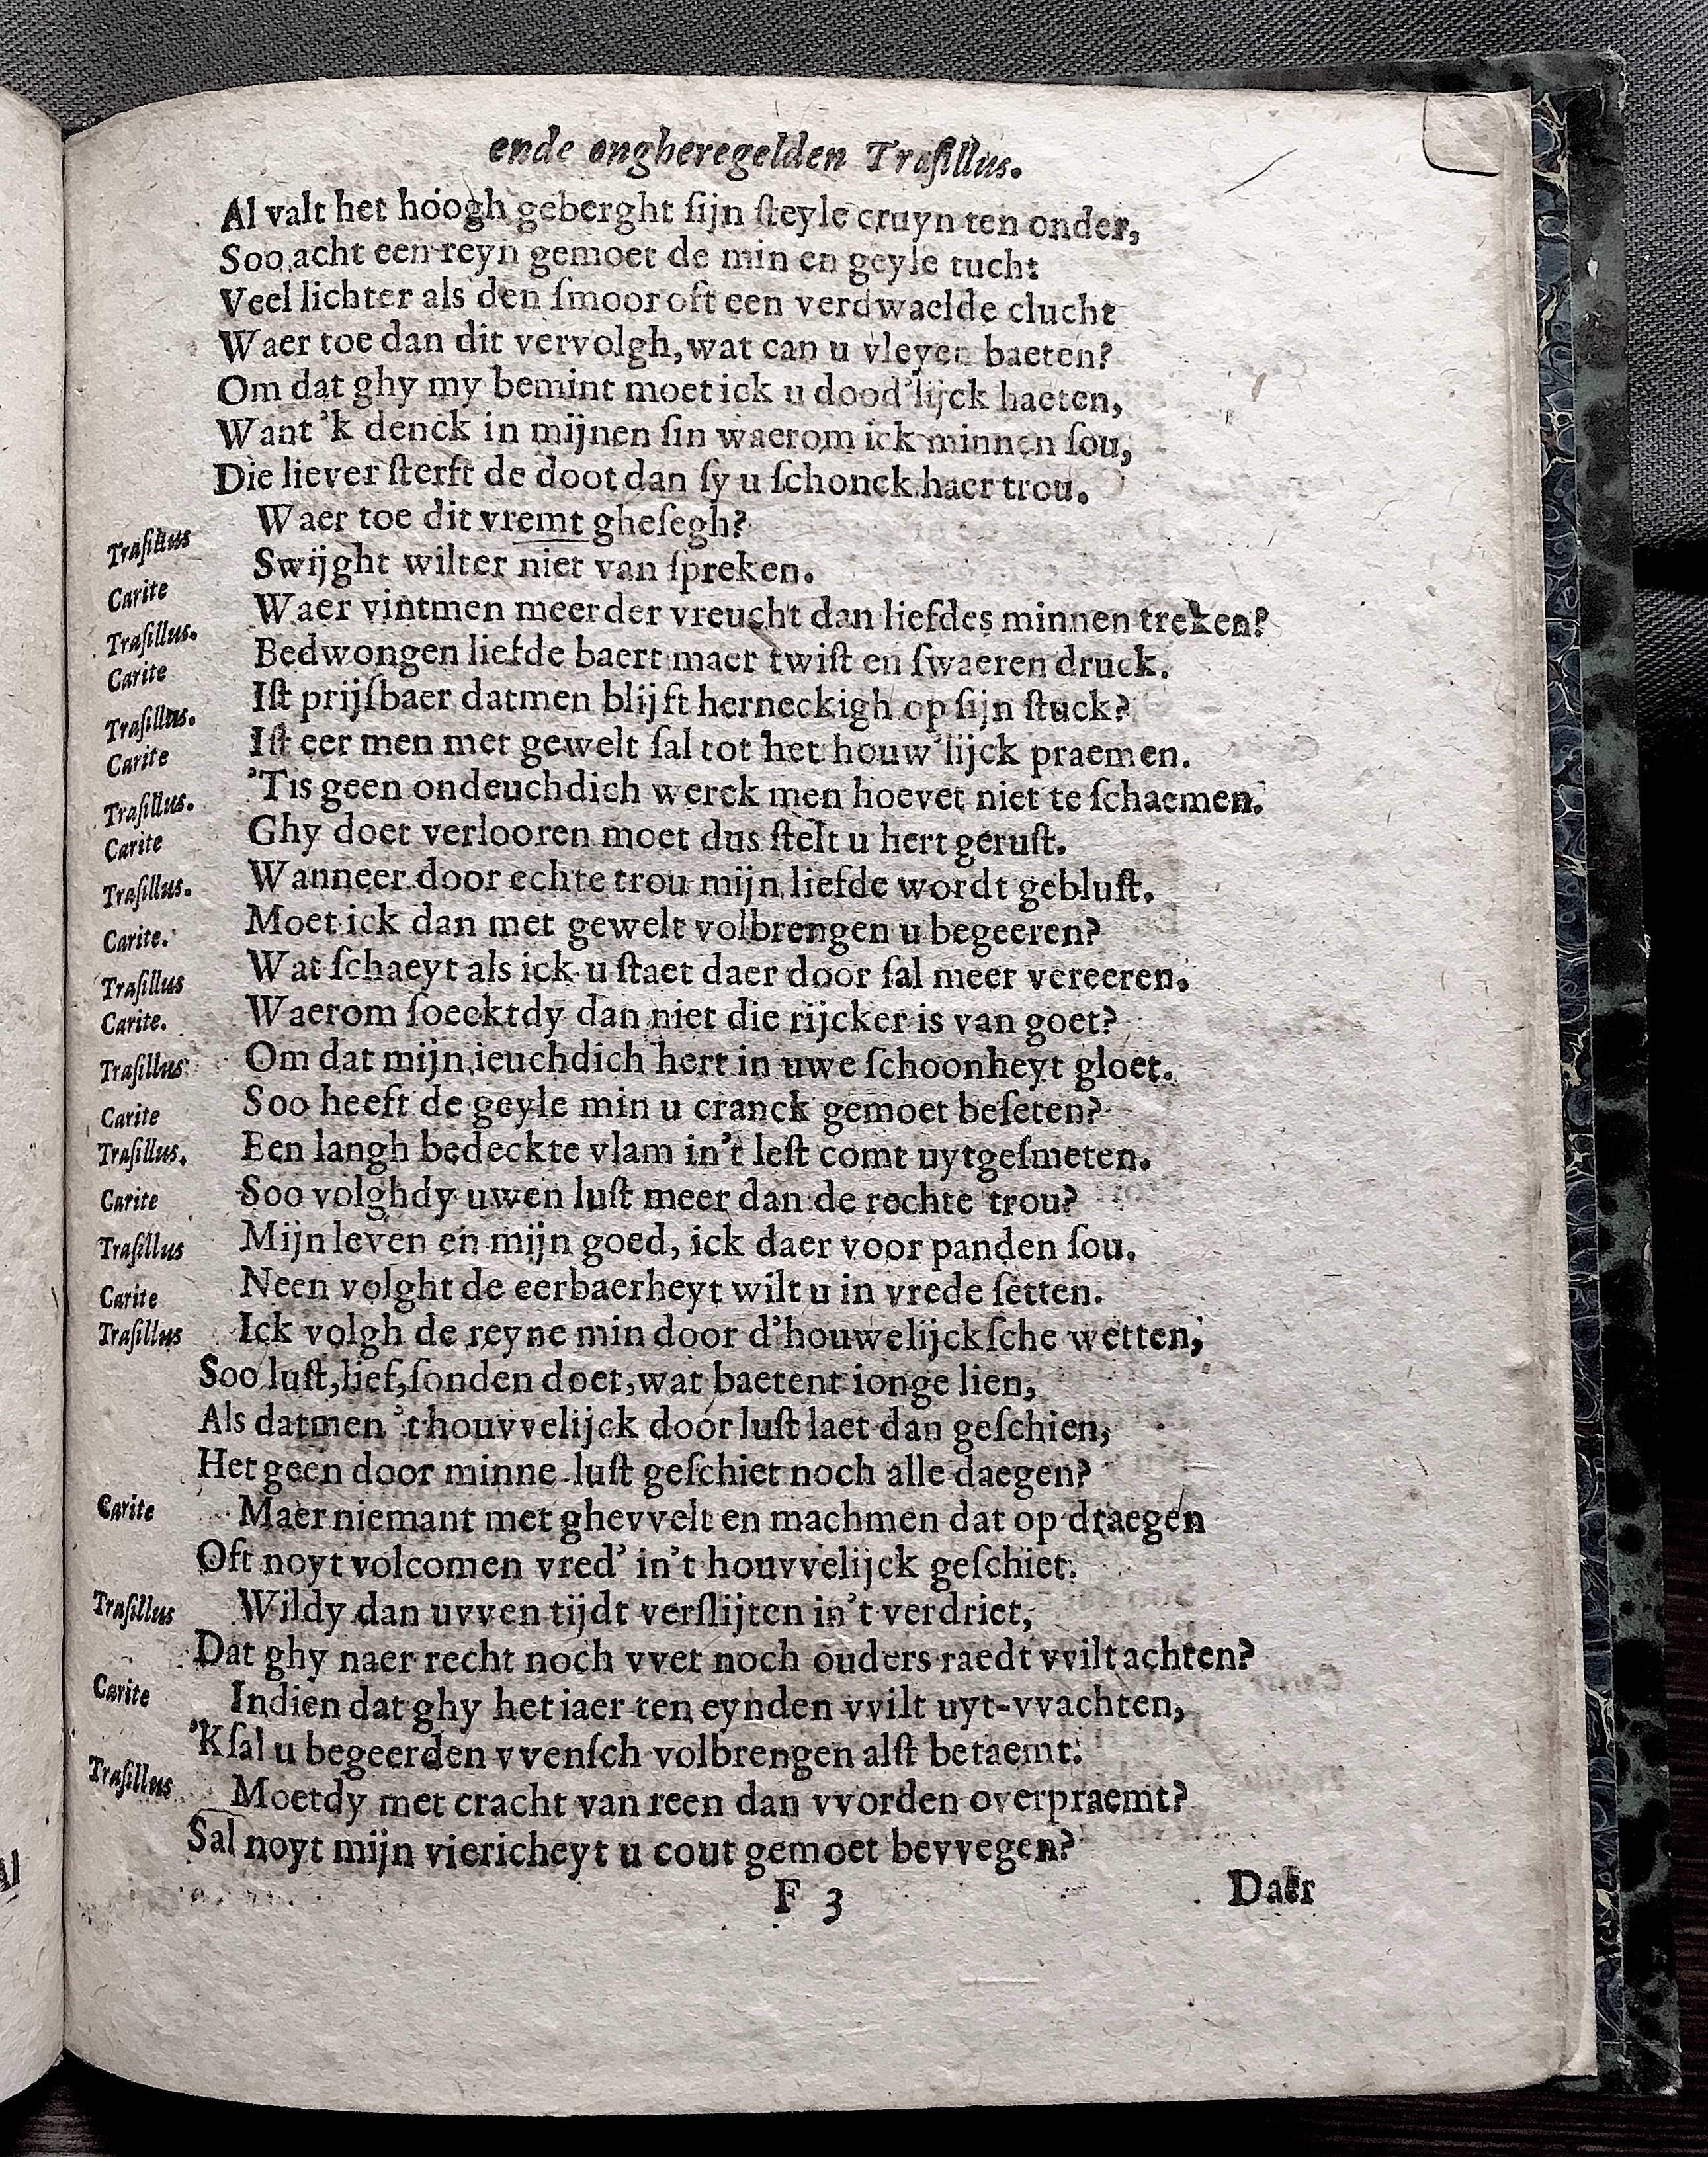 ende ongheregelden Traſillus.
Al valt het hóogh geberght ſijn ſteyle cruyn ten onder,
Soo acht een reyn gemoet de min en geyle tucht
Veel lichter als den ſmoor oft een verdwaelde clucht
Waer toe dan dit vervolgh, wat can u vleyen baeten?
Om dat ghy my bemint moet ick u dood'lijck haeten,
Want 'k denck in mijnen ſin waerom ick minnen ſou,
Die liever ſterft de doot dan ſy u ſchonck haer trou.
Traſillus Waer toe dit vremt gheſegh?
Carite Swijght wilter niet van ſpreken.
Traſillus. Waer vintmen meerder vreucht dan liefdes minnen treken?
Carite Bedwongen liefde baert maer twiſt en ſwaeren druck.
Traſillus. Iſt prijſbaer datmen blijft herneckigh op ſijn ſtuck?
Carite Iſt eer men met gewelt ſal tot het houw'lijck praemen.
Traſillus. 'Tis geen ondeuchdich werck men hoevet niet te ſchaemen.
Carite Ghy doet verlooren moet dus ſtelt u hert geruſt.
Traſillus. Wanneer door echte trou mijn liefde wordt gebluſt.
Carite. Moet ick dan met gewelt volbrengen u begeeren?
Traſillus Wat ſchaeyt als ick u ſtaet daer door ſal meer vereeren.
Carite. Waerom ſoecktdy dan niet die rijcker is van goet?
Traſillus Om dat mijn ieuchdich hert in uwe ſchoonheyt gloet.
Carite Soo heeft de geyle min u cranck gemoet beſeten?
Traſillus. Een langh bedeckte vlam in't leſt comt uytgeſmeten.
Carite Soo volghdy uwen luſt meer dan de rechte trou?
Traſillus Mijn leven en mijn goed, ick daer voor panden ſou.
Carite Neen volght de eerbaerheyt wilt u in vrede ſetten.
Traſillus Ick volgh de reyne min door d'houwelijckſche wetten,
Soo luſt, lief, ſonden doet, wat baetent ionge lien,
Als datmen 't houvvelijck door luſt laet dan geſchien,
Het geen door minne-luſt geſchiet noch alle daegen?
Carite Maer niemant met ghevvelt en machmen dat op draegen
Oft noyt volcomen vred' in't houvvelijck geſchiet.
Traſillus Wildy dan uvven tijdt verſlijten in't verdriet,
Dat ghy naer recht noch vvet noch ouders raedt vvilt achten?
Carite Indien dat ghy het iaer ten eynden vvilt uyt-vvachten,
'Kſal u begeerden vvenſch volbrengen alſt betaemt.
Traſillus Moetdy met cracht van reen dan vvorden overpraemt?
Sal noyt mijn viericheyt u cout gemoet bevvegen?
F 3 Daer